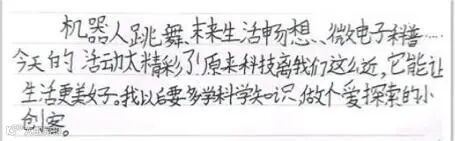 机器人跳舞、未来生活畅想、微电子科普……
今天的活动太精彩了!原来科技离我们这么近,它能让
生活更美好。我以后要多学科学知识,做个爱探索的小
创客。